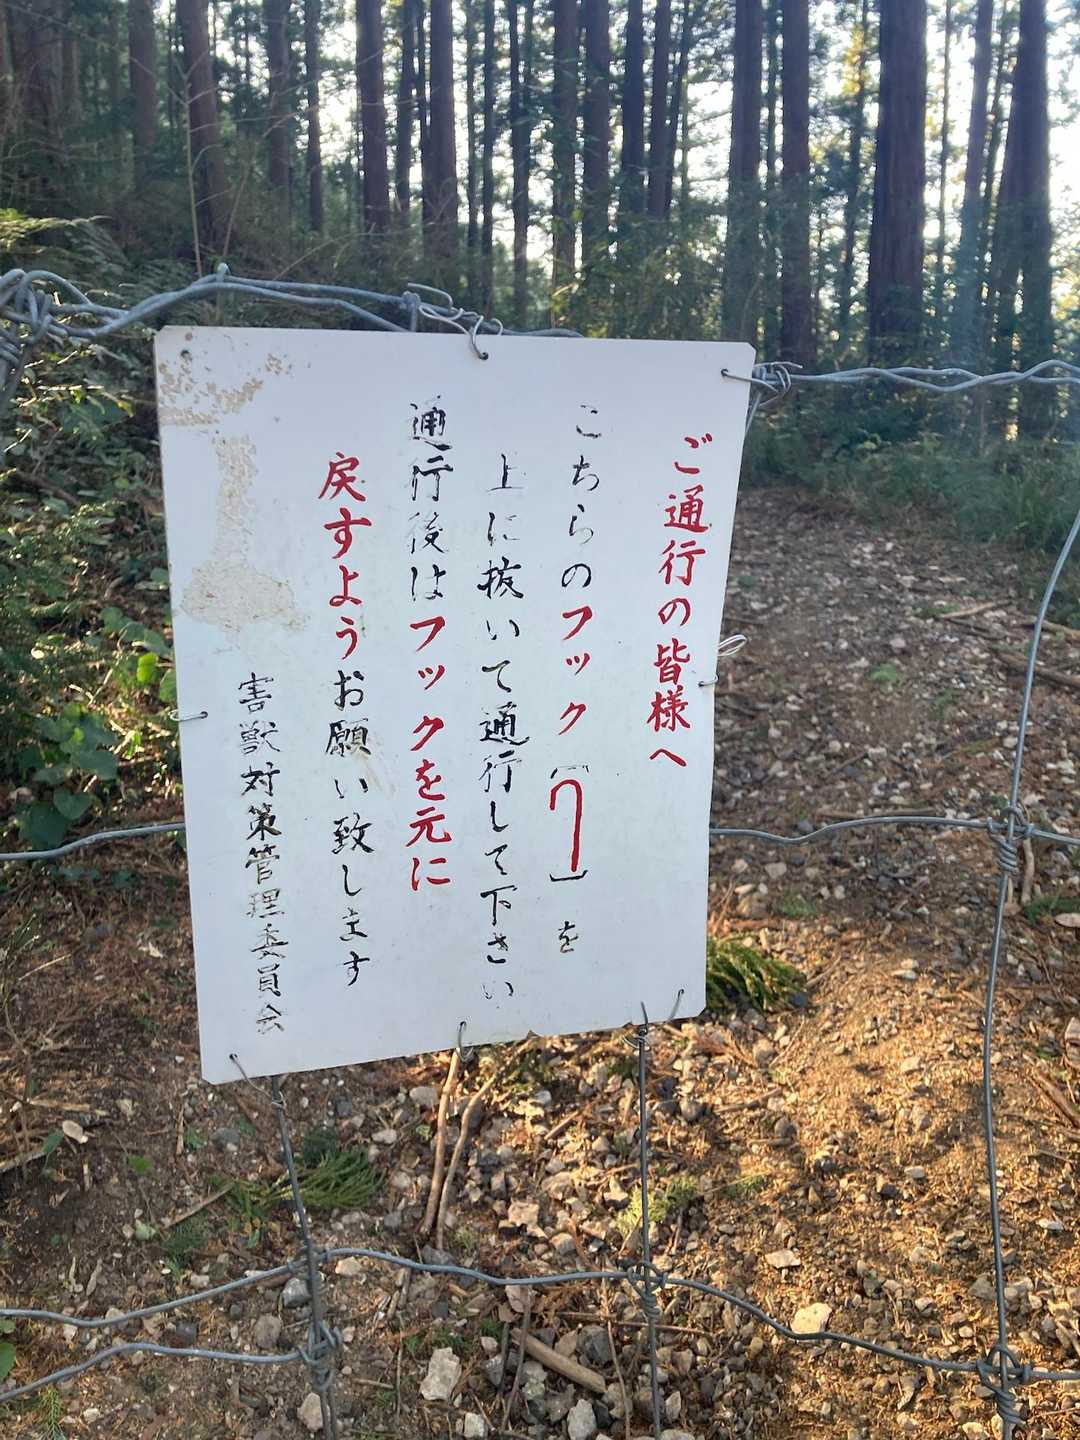 ご通行の皆様へ
こちらのフック「　」を
上に抜いて通行して下さい
通行後はフックを元に
戻すようお願い致します
害獣対策管理委員会